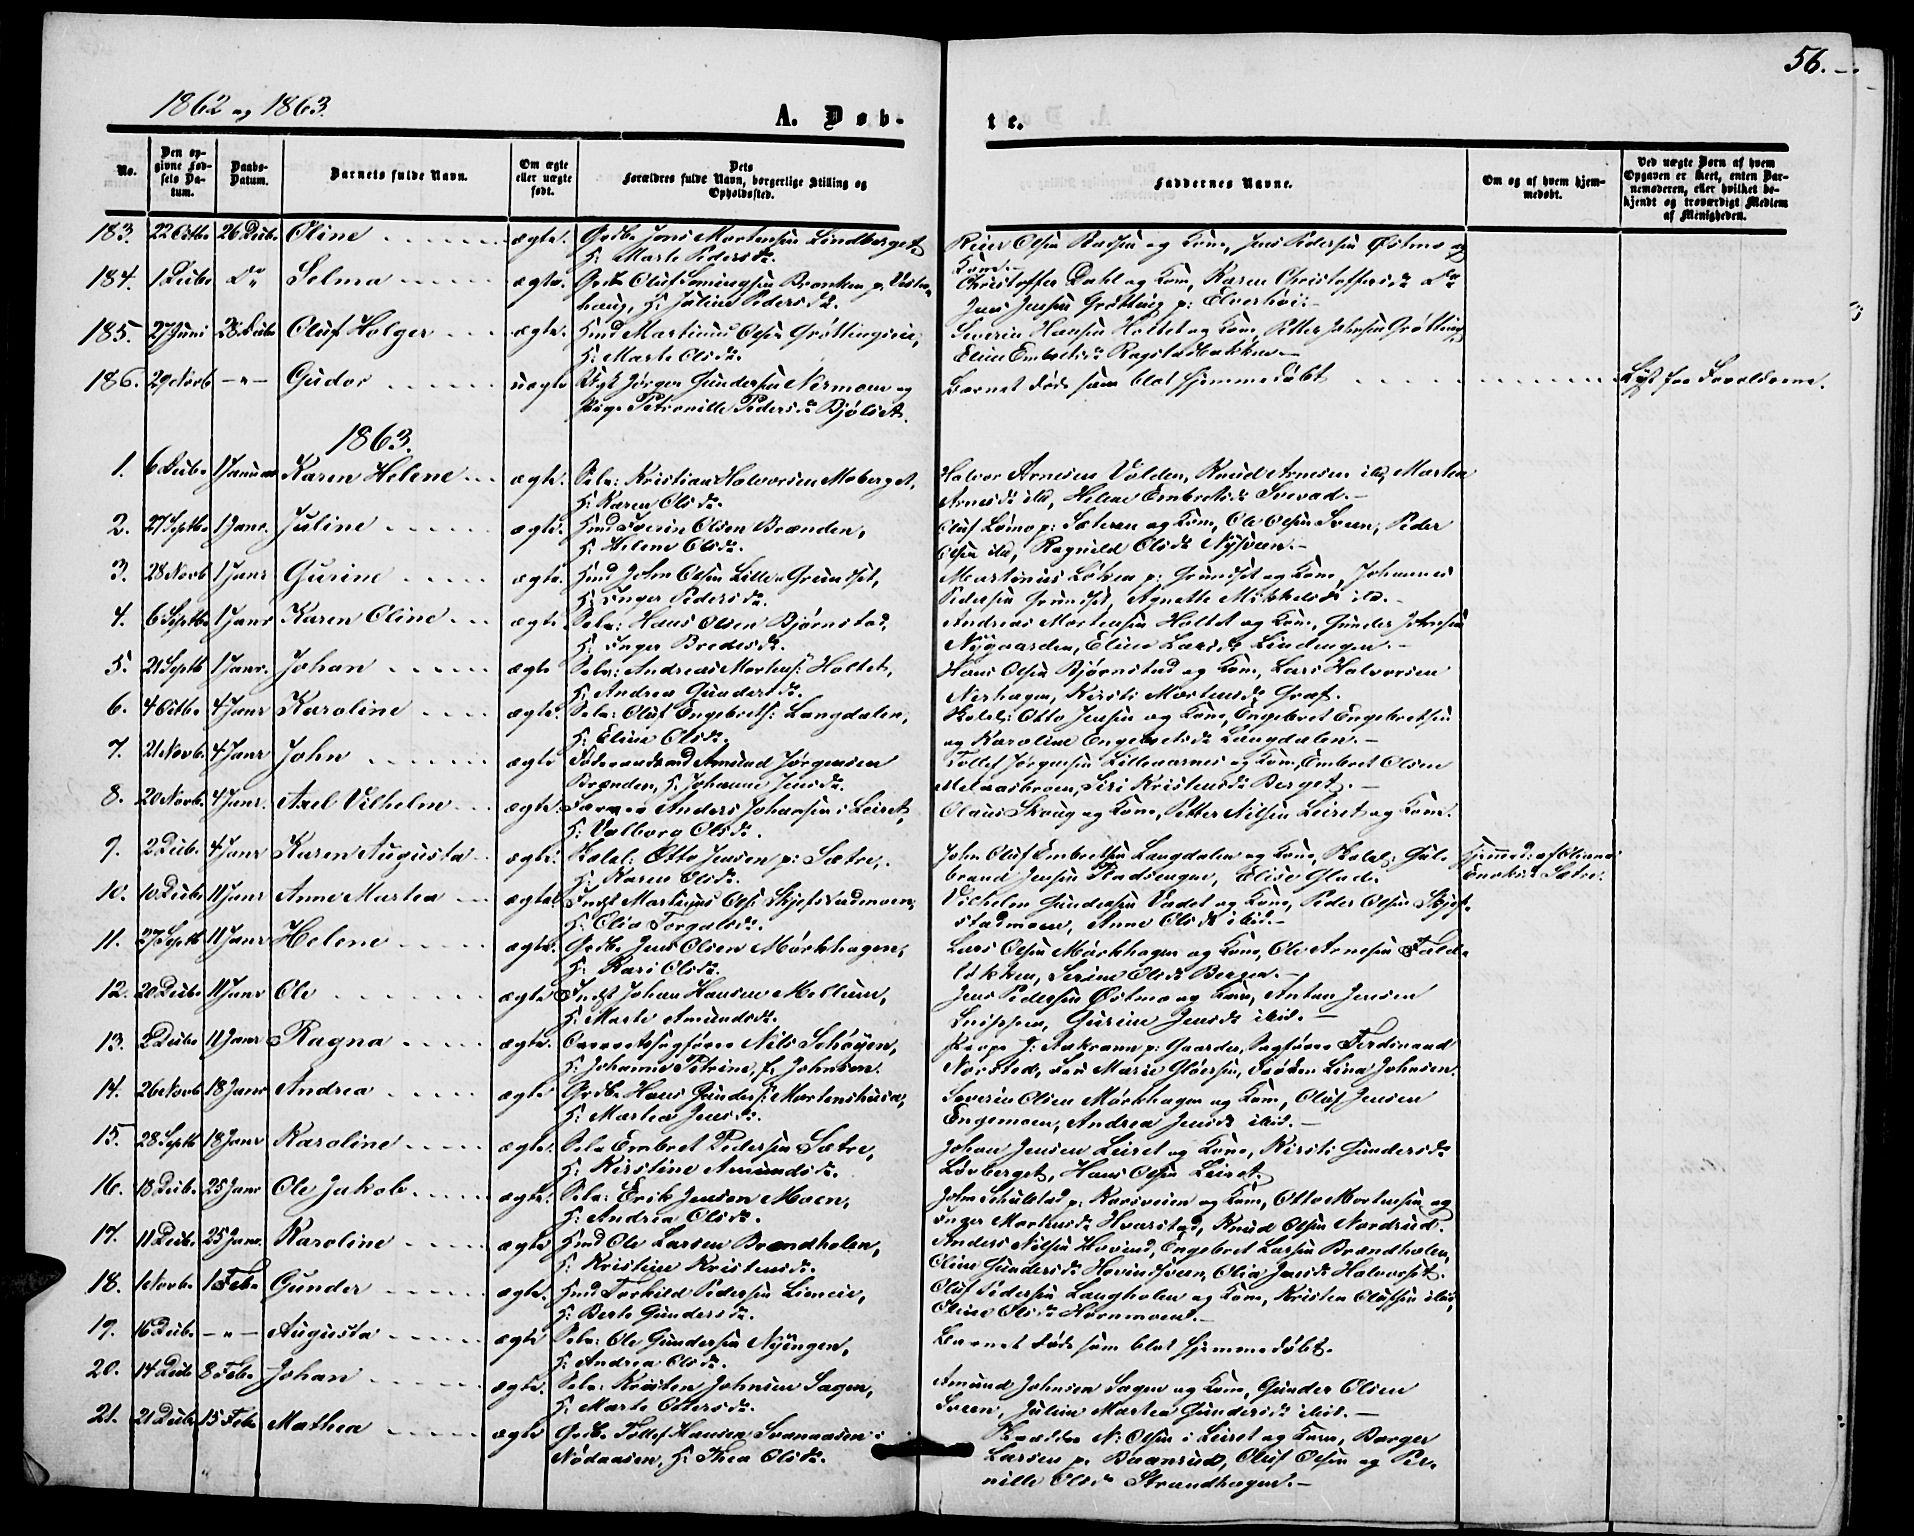 56.
1862 og 1863.
A. Døb-
te.
No.
Den op-
givne Fød-
sels Da-
tum.
Daabs-
Datum.
Barnets fulde Navn.
Om ægte
eller uægte
født.
Dets
Forældres fulde Navn, borgerlige Stilling og
Opholdssted.
Faddernes Navne.
Om og af hvem hjem-
medøbt.
Ved uægte Børn af hvem
Opgaven er skeet, enten Bar-
nemoderen, eller hvilket be-
kjendt og troværdigt Medlem
af Menigheden.
183. 22 Octbr 26 Decbr Oline ægte. Grdbr Jens Mortensen Lindberget
H: Marte Pedersdr.
Olsen og Kone, Jens Pedersen Østmo og
Kone.-
184. 1 Decbr Do Selma ægte. Oluf p:
haug, H: Juline Pedersdr.
Christoffer Dahl og Kone, Karen Christoffersdr Do
Jens Jensen Grøtting p: Elverhøi.-
185. 27 Juni 28 Decbr Oluf Holger ægte. Hmd Martinus Olsen Grøttingseie,
H: Marte Olsdr.
Severin Hansen Holtet og Kone, Petter Johnsen Grøtting,
Eline Embretsdr Ragstadbakken.-
186. 29 Novb -"- Gudor uægte Ungk Jørgen Gundersen Nermoen og
Pige Petronille Pedersdr Bjølset.
Barnet døde som blot hjemmedøbt
Lyst fra Forældrene.
1863.
1. 6 Decbr 1 Januar Karen Helene ægte. Selv: Kristian Halvorsen Moberget,
H: Karen Olsdr.
Halvor Arnesen Volden, Knud Arnesen ibd, Marthea
Arnesdr ibd, Helene Embretsdr
2. 27 Septbr 1 Janr. Juline ægte. Hmd Iverin Olsen Brænden,
H: Helene Olsdr.
Oluf p: Sæteren og Kone, Ole Olsen Sveen, Peder
Olsen ibd, Ragnild Olsdr Nysveen.-
3. 28 Novb 1 Janr Gurine ægte. Hmd John Olsen Lille Grundset,
H: Inger Pedersdr.
Martinus p: Grundset og Kone, Johannes
Pedersen Grundset, Agnette Mikkelsdr ibd.-
4. 6 Septbr 1 Janr Karen Oline ægte Selv: Hans Olsen Bjørnstad,
H: Inger Bredesdr.
Andreas Mortensen Holtet og Kone, Gunder Johnsen
Nygaarden, Eline Larsdr
5. 21 Septb 1 Janr. Johan ægte Selv: Andreas Mortens: Holtet,
H: Andrea Gundersdr.
Hans Olsen Bjørnstad og Kone, Lars Halvorsen
Nerhagen, Kersti Mortensdr Graf.
6. 4 Octbr 4 Janr Karoline ægte. Selv: Oluf Engebrets: Langdalen,
H: Eline Olsdr.
Otto Jensen og Kone, Engebret Engebretsen
og Karoline Engebretsdr Langdalen.-
7. 21 Novb. 4 Janr John ægte Føderaadsmd Amund Jørgensen
Brænden, H: Johanne Jensdr.
Tollef Jørgensen og Kone, Embret Olsen
Siri Kristensdr Berget.-
8. 20 Novb. 4 Janr. Axel Vilhelm ægte. Anders Johansen i Leiret,
H: Valborg Olsdr.
Olaus Skaug og Kone, Petter Nilsen Leiret og Kone.
9. 2 Decbr. 4 Janr Karen Augusta ægte. Otto Jensen p: Sætre,
H: Karen Olsdr.
John Oluf Embretsen Langdalen og Kone, Gul-
brand Jensen Stadsengen, Elise Glad.
Hjemmed: af Oliane
Enoksdr Sætre.
10. 10 Decbr 11 Janr Anne Martea ægte Indst Martinus Ols: Skjefstadmoen,
H: Olia Torgalsdr.
Vilhelm Gundersen Vadet og Kone, Peder Olsen Skjef-
stadmoen, Anne Olsdr ibid.-
11. 27 Septb 11 Janr Helene ægte. Grdbr Jens Olsen Mørkhagen,
H: Kari Olsdr.
Lars Olsen Mørkhagen og Kone, Ole Arnesen Fald-
Serine Olsdr Bergen.-
12. 20 Decbr 11 Janr Ole ægte Indst Johan Hansen Mellum,
H: Marte Amundsdr.
Jens Pedersen Østmo og Kone, Anton Jensen
Gurine Jensdr ibid.-
13. 2 Decbr 11 Janr Ragna ægte. Overretssagfører Nils Schøyen,
H: Johanne Petrine, f. Johnsen.
J: Aakrann p: Gaarder, Sagfører Ferdinand
Norsted, Marie Gløersen, Frøken Lina Johnsen.
14. 26 Novb 18 Janr Andrea ægte Grdbr Hans Gunders: Mortenshuse,
H: Martea Jensdr.
Severin Olsen Mørkhagen og Kone, Oluf Jensen
Engemoen, Andrea Jensdr ibid.-
15. 28 Septb 18 Janr Karoline ægte. Selv: Embret Pedersen Sætre,
H: Kirstine Amundsdr.
Johan Jensen Leiret og Kone, Kirsti Gundersdr
Løvberget, Hans Olsen Leiret.
16. 18 Decbr 25 Janr Ole Jakob ægte. Selv: Erik Jensen Moen,
H: Andrea Olsdr.
John Skulstad p: og Kone, Otto Mortensen og
Inger Mortensdr Hvarstad, Knud Olsen Nordrud.
17. 11 Decbr 25 Janr. Karoline ægte Hmd Ole Larsen Brændholen,
H: Kristine Kristensdr.
Anders Nilsen Hovind, Engebret Larsen Brændholen,
Oline Gundersdr Hovindsveen, Olia Jensdr Halvorset.
18. 1 Novbr 1 Febr Gunder ægte. Hmd Torkild Pedersen Lieneie,
H: Berte Gundersdr.
Oluf Pedersen Langholen og Kone, Kristen Olufsen ibid,
Oline Olsdr Hornmoen.-
19. 16 Decbr -"- Augusta ægte Selv: Ole Gundersen Nyengen,
H: Andrea Olsdr.
Barnet døde som blot hjemmedøbt.
20. 14 Decb 8 Febr Johan ægte. Selv: Kristen Johnsen Sagen,
H: Marte Ottersdr.
Amund Johnsen Sagen og Kone, Gunder Olsen
Sveen, Juline Martea Gundersdr ibid.-
21. 21 Decbr 15 Febr Mathea ægte Grdbr Tollef Hansen Svenaasen i
Nødaasen, H: Thea Olsdr.
N: Olsen i Leiret og Kone, Borger
Larsen p: Oluf Olsen og Per-
nille Olsdr Strandhagen.-